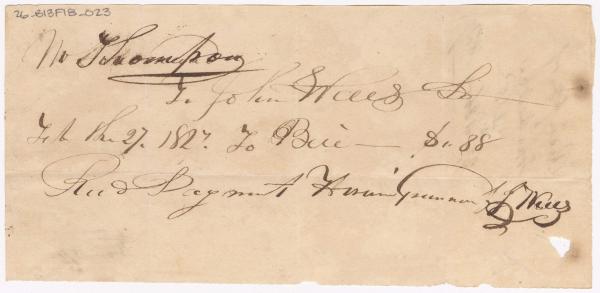 26-B13F1B-023
Mr Thompson
To John Wells Dr
Feb the 27. 1827. To Bill — $1.88
Recd Payment J Wells